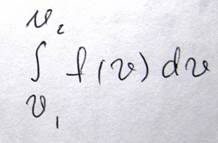 ∫_{v_1}^{v_2} f(v) dv